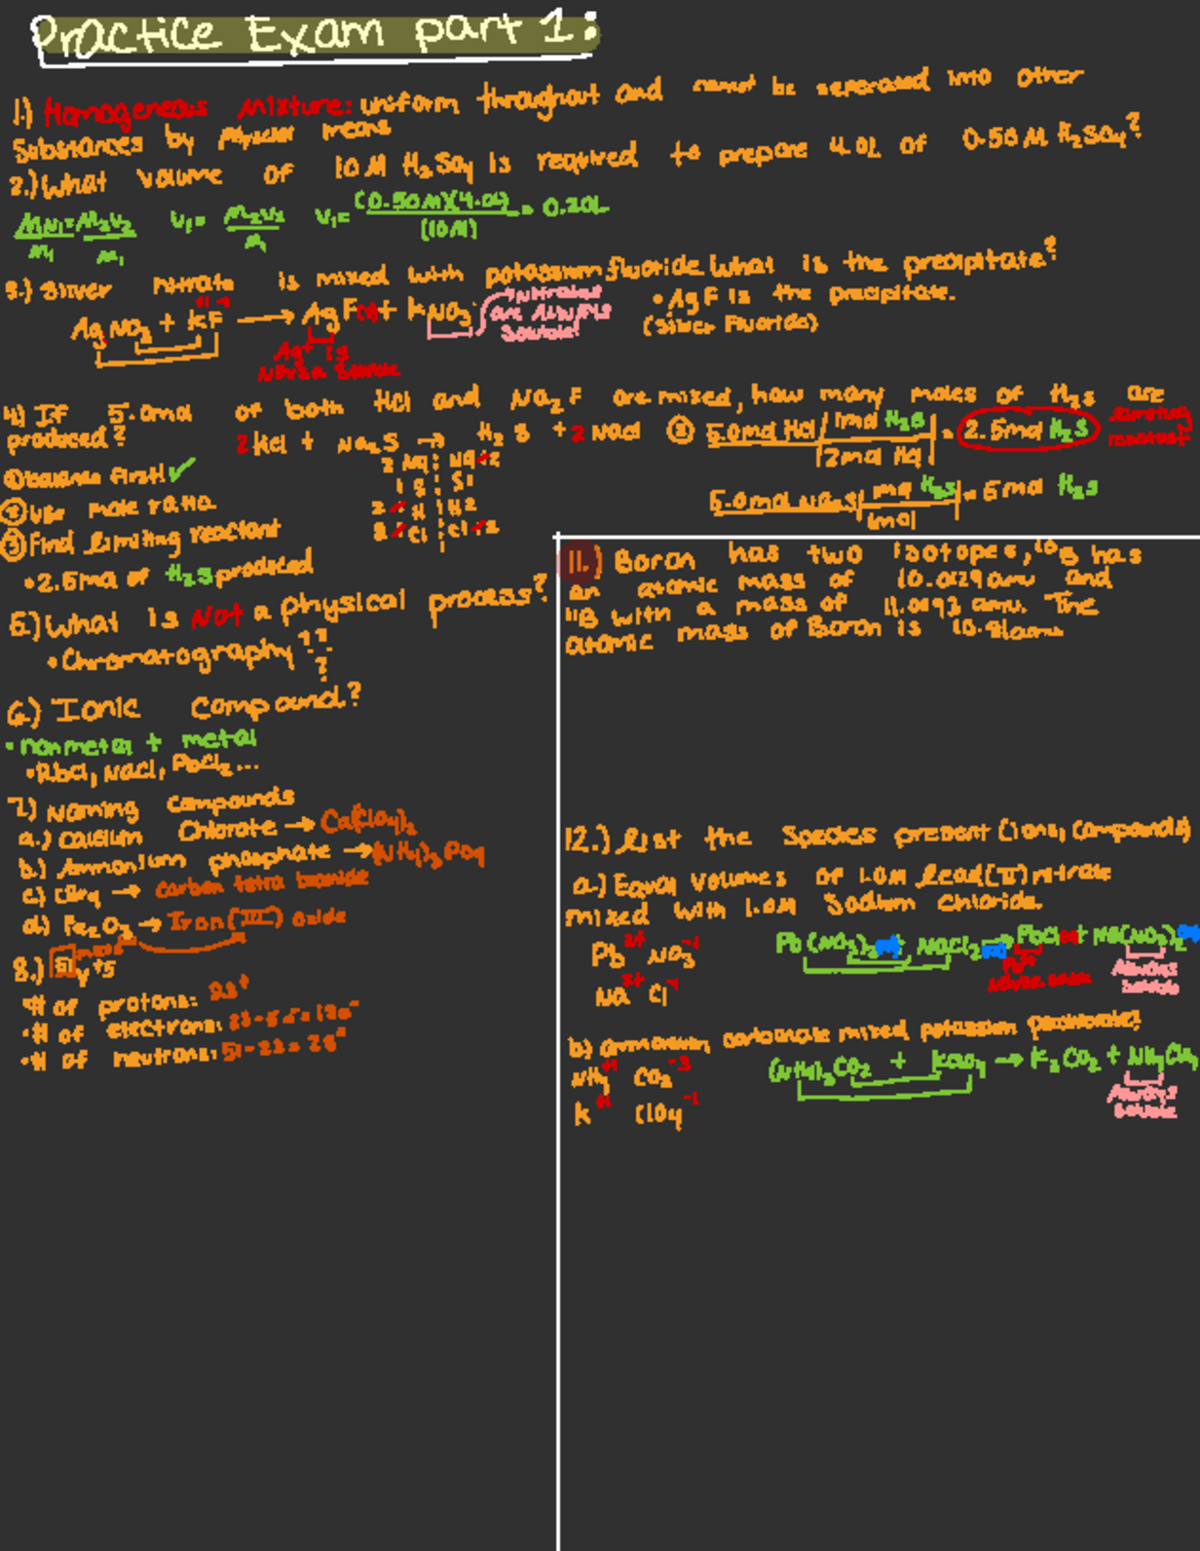 Practice Exam part 1:
1.) Homogeneous Mixture: uniform throughout and cannot be seperated into other
Substances by physical means
2.) What volume of 10M H₂SO₄ is required to prepare 4.0L of 0.50M H₂SO₄?
M₁V₁=M₂V₂ V₁= M₂V₂ V₁= (0.50M)(4.0L) = 0.20L
M₁ M₁ M₁ (10M)
3.) Silver nitrate is mixed with potassium fluoride. What is the precipitate?
AgNO₃ + KF → AgF + KNO₃
Nitrates
are Always
Soluble!
• AgF is the precipitate.
(Silver Fluoride)
Ag⁺ is
4.) If 5.0mol of both HCl and Na₂F are mixed, how many moles of H₂S are
produced?
2HCl + Na₂S → H₂S + 2NaCl
② 5.0mol HCl 1mol H₂S = 2.5mol H₂S limiting
2mol HCl reactant
5.0mol Na₂S mol H₂S = 5mol H₂S
1mol
① balance first! ✓
② use mole ratio
③ Find limiting reactant
• 2.5mol of H₂S produced
2 Na Na 2
1 S S 1
2 H H 2
2 Cl Cl 2
5.) What is Not a physical process?
• Chromatography ???
6.) Ionic Compound?
• nonmetal + metal
• RbCl, NaCl, PbCl₂...
7.) Naming Compounds
a.) Calcium Chlorate → Ca(ClO₄)₂
b.) Ammonium phosphate → (NH₄)₃PO₄
c.) CBr₄ → Carbon tetra bromide
d.) Fe₂O₃ → Iron (III) oxide
8.) 51 V⁺⁵
mass
• # of protons: 23⁺
• # of electrons: 23-5 = 18e⁻
• # of neutrons: 51-23 = 28
11.) Boron has two isotopes, ¹⁰B has
an atomic mass of 10.0129amu and
¹¹B with a mass of 11.0093 amu. The
atomic mass of Boron is 10.81amu
12.) List the Species present (ions, compounds)
a.) Equal volumes of 1.0M lead(II) nitrate
mixed with 1.0M Sodium Chloride.
Pb²⁺ NO₃⁻¹
Na Cl
Pb(NO₃)₂ + NaCl₂ → PbCl + Na(NO₃)₂
Always
Soluble
b.) ammonium carbonate mixed potassium perchlorate?
NH₄⁺¹ CO₂⁻³
K⁺¹ ClO₄⁻¹
(NH₄)₃CO₂ + KClO₄ → K₃CO₂ + NH₄ClO₄
Always
Soluble